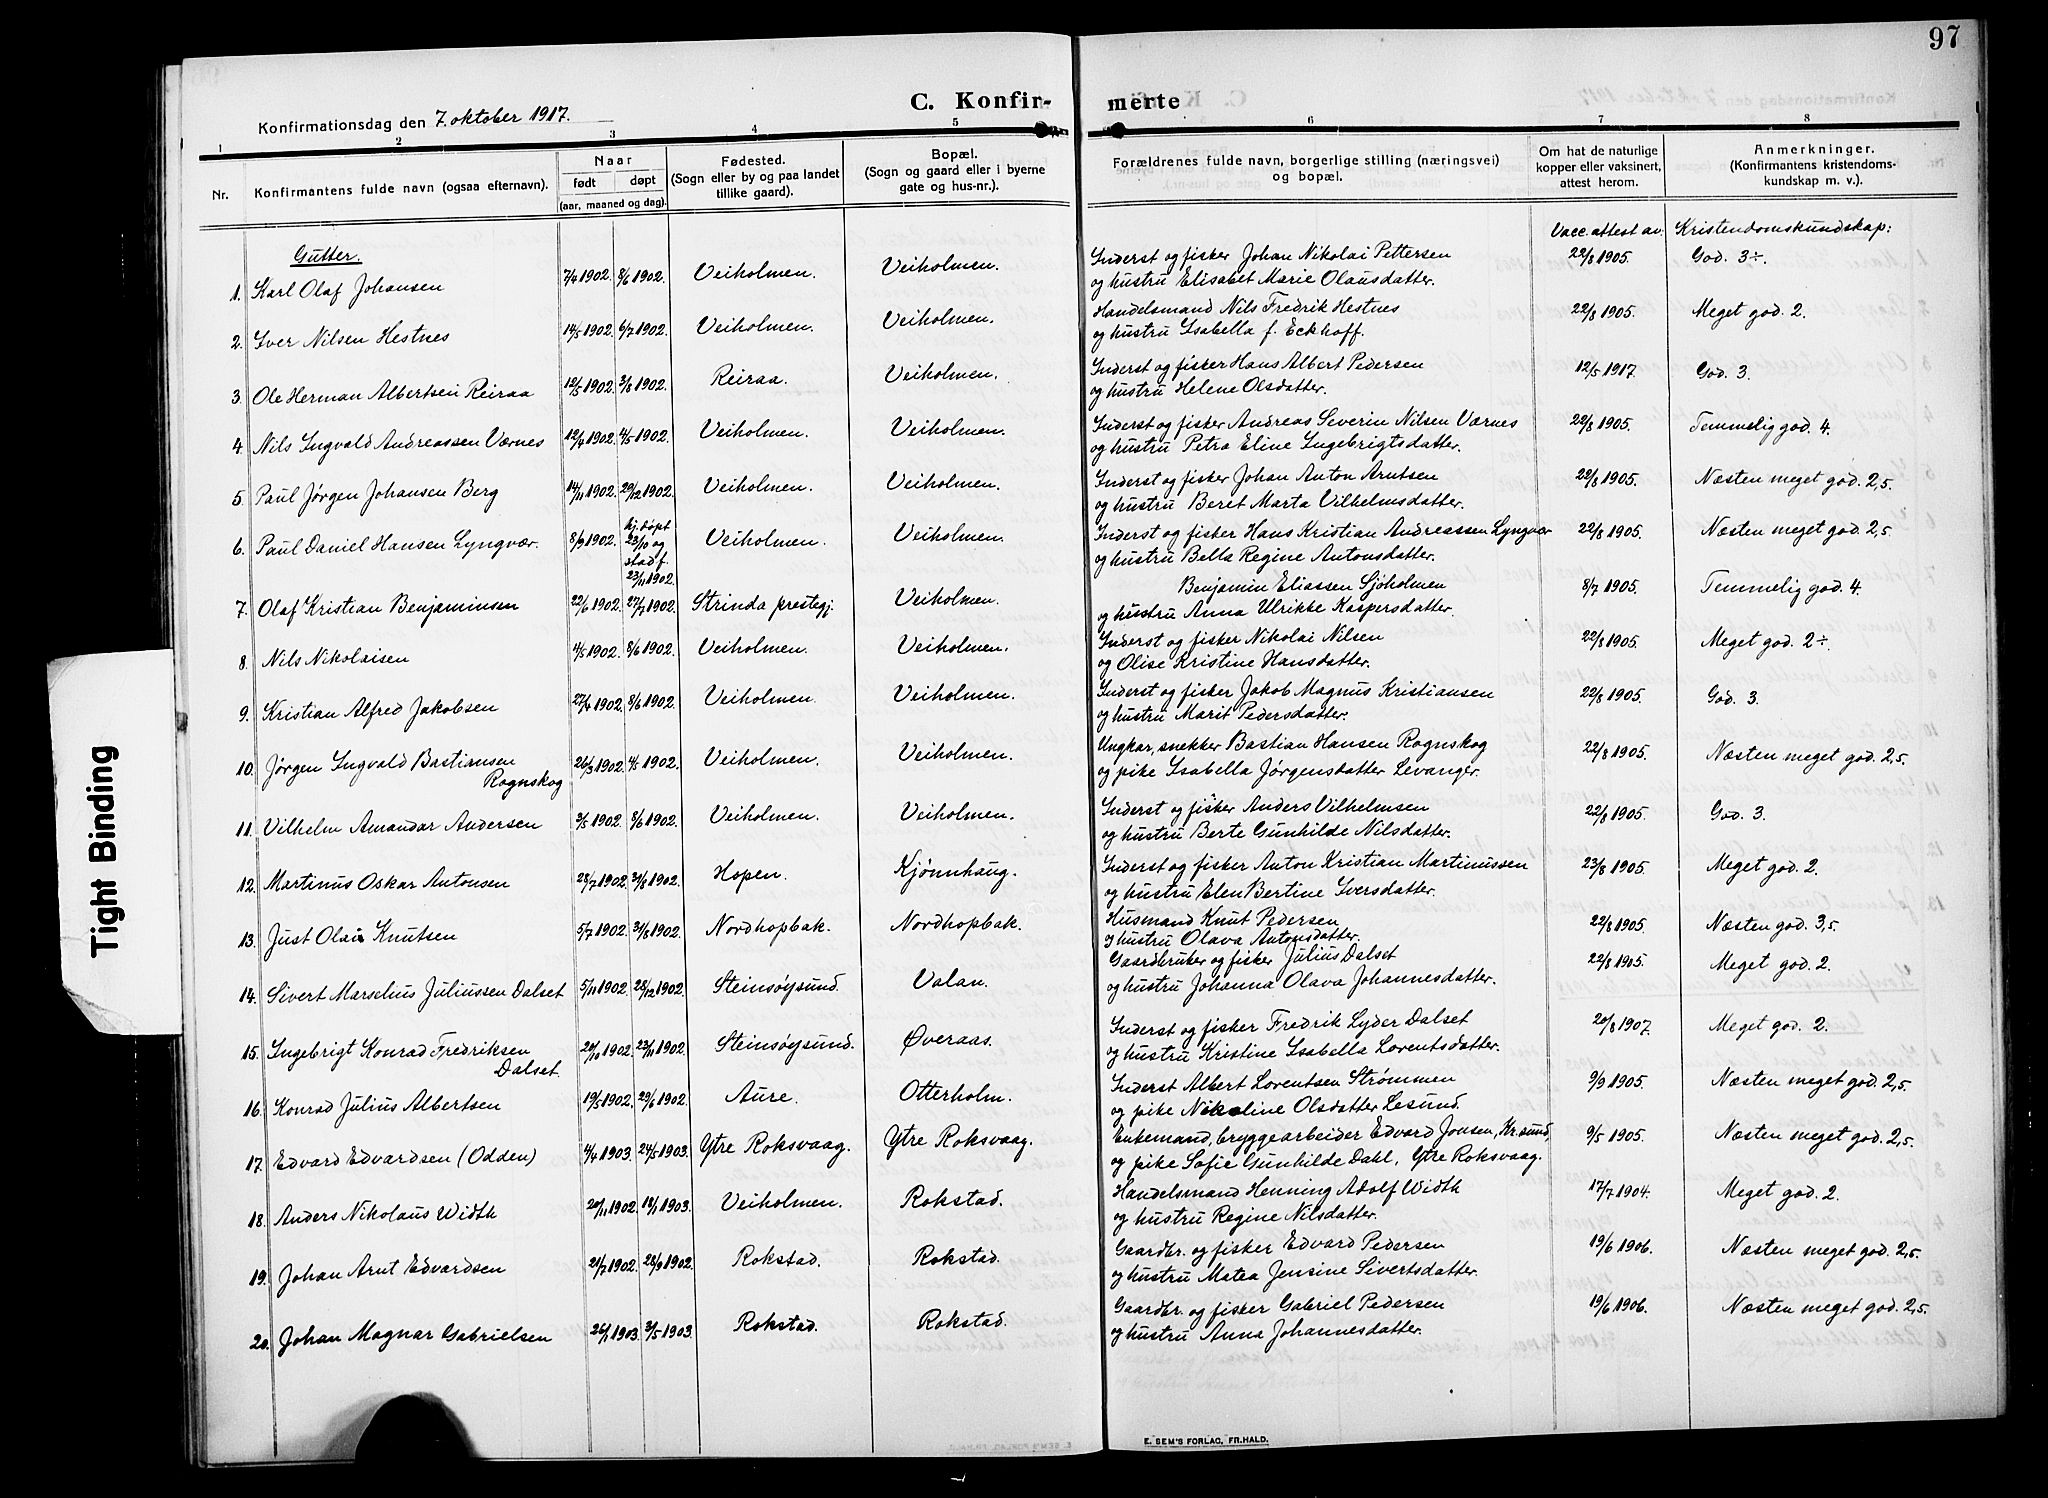 97
C. Konfir-merte
Konfirmationsdag den 7. oktober 1917.
1 2 3 4 5 6 7 8
Nr. Konfirmantens fulde navn (ogsaa efternavn). Naar født døpt (aar, maaned og dag). Fødested. (Sogn eller by og paa landet tillike gaard). Bopæl. (Sogn og gaard eller i byerne gate og hus-nr.). Forældrenes fulde navn, borgerlige stilling (næringsvei) og bopæl. Om hat de naturlige kopper eller vaksinert, attest herom. Anmerkninger. (Konfirmantens kristendoms-kundskap m. v.).
Gutter. Vacc. attest av: Kristendomskundskap:
1. Karl Olaf Johansen 7/4 1902. 8/6 1902. Veiholmen. Veiholmen. Inderst og fisker Johan Nikolai Pettersen 22/8 1905. God. 3÷.
og hustru Elisabet Marie Olausdatter.
2. Iver Nilsen Hestnes 14/5 1902. 6/7 1902. Veiholmen. Veiholmen. Handelsmand Nils Fredrik Hestnes 22/8 1905. Meget god. 2.
og hustru Isabella f. Eckhoff.
3. Ole Herman Albertsen Reiraa 12/5 1902. 3/8 1902. Reiraa. Veiholmen. Inderst og fisker Hans Albert Pedersen 12/5 1917. God. 3.
og hustru Helene Olsdatter.
4. Nils Ingvald Andreassen Værnes 1902. 4/5 1902. Veiholmen. Veiholmen. Inderst og fisker Andreas Severin Nilsen Værnes 22/8 1905. Temmelig god. 4.
og hustru Petra Eline Ingebrigtsdatter.
5. Paul Jørgen Johansen Berg 14/11 1902. 29/12 1902. Veiholmen. Veiholmen. Inderst og fisker Johan Anton Arntsen 22/8 1905. Næsten meget god. 2,5.
og hustru Beret Marta Vilhelmsdatter.
6. Paul Daniel Hansen Lyngvær. 8/9 1902. hj. døpt 23/10 og stadf. 23/11 1902. Veiholmen. Veiholmen. Inderst og fisker Hans Kristian Andreassen Lyngvær 22/8 1905. Næsten meget god. 2,5.
og hustru Bella Regine Antonsdatter.
7. Olaf Kristian Benjaminsen 22/6 1902. 27/7 1902. Strinda prestegj. Veiholmen. Benjamin Eliassen Sjøholmen 8/7 1905. Temmelig god. 4.
og hustru Anna Ulrikke Kaspersdatter.
8. Nils Nikolaisen 4/5 1902. 8/6 1902. Veiholmen. Veiholmen. Inderst og fisker Nikolai Nilsen 22/8 1905. Meget god. 2÷.
og Olise Kristine Hansdatter.
9. Kristian Alfred Jakobsen 27/4 1902. 8/6 1902. Veiholmen. Veiholmen. Inderst og fisker Jakob Magnus Kristiansen 22/8 1905. God. 3.
og hustru Marit Pedersdatter.
10. Jørgen Ingvald Bastiansen Rognskog 26/3 1902. 4/5 1902. Veiholmen. Veiholmen. Ungkar, snekker Bastian Hansen Rognskog 22/8 1905. Næsten meget god. 2,5.
og pike Isabella Jørgensdatter Levanger.
11. Vilhelm Amandar Andersen 3/5 1902. 8/6 1902. Veiholmen. Veiholmen. Inderst og fisker Anders Vilhelmsen 22/8 1905. God. 3.
og hustru Berte Gunhilde Nilsdatter.
12. Martinus Oskar Antonsen 28/7 1902. 31/8 1902. Hopen. Kjønnhaug. Inderst og fisker Anton Kristian Martinussen 23/8 1905. Meget god. 2.
og hustru Elen Bertine Iversdatter.
13. Just Olai Knutsen 5/7 1902. 31/8 1902. Nordhopbak. Nordhopbak. Husmand Knut Pedersen 22/8 1905. Næsten god. 3,5.
og hustru Olava Antonsdatter.
14. Sivert Marselius Juliussen Dalset 5/11 1902. 28/12 1902. Steinsøysund. Valan. Gaardbruker og fisker Julius Dalset 22/8 1905. Meget god. 2.
og hustru Johanna Olava Johannesdatter.
15. Ingebrigt Konrad Fredriksen Dalset. 20/10 1902. 23/11 1902. Steinsøysund. Øveraas. Inderst og fisker Fredrik Lyder Dalset 20/8 1907. Meget god. 2.
og hustru Kristine Isabella Lorentsdatter.
16. Konrad Julius Albertsen 19/5 1902. 29/6 1902. Aure. Otterholm. Inderst Albert Lorentsen Strømmen 9/9 1905. Næsten meget god. 2,5.
og pike Nikoline Olsdatter Lesund.
17. Edvard Edvardsen (Odden) 4/4 1903. 24/5 1903. Ytre Roksvaag. Ytre Roksvaag. Enkemand, bryggearbeider Edvard Jonsen, Kr.sund, 9/5 1905. Næsten meget god. 2,5.
og pike Sofie Gunhilde Dahl, Ytre Roksvaag.
18. Anders Nikolaus Width 20/11 1902. 18/1 1903. Veiholmen. Rokstad. Handelsmand Henning Adolf Width 17/7 1904. Meget god. 2.
og hustru Regine Nilsdatter.
19. Johan Arnt Edvardsen 21/7 1902. 28/9 1902. Rokstad. Rokstad. Gaardbr. og fisker Edvard Pedersen 19/6 1906. Næsten meget god. 2,5.
og hustru Matea Jensine Sivertsdatter.
20. Johan Magnar Gabrielsen 26/1 1903. 3/5 1903. Rokstad. Rokstad. Gaardbr. og fisker Gabriel Pedersen 19/6 1906. Næsten meget god. 2,5.
og hustru Anna Johannesdatter.
E. SEM'S FORLAG, FR.HALD.
Tight Binding